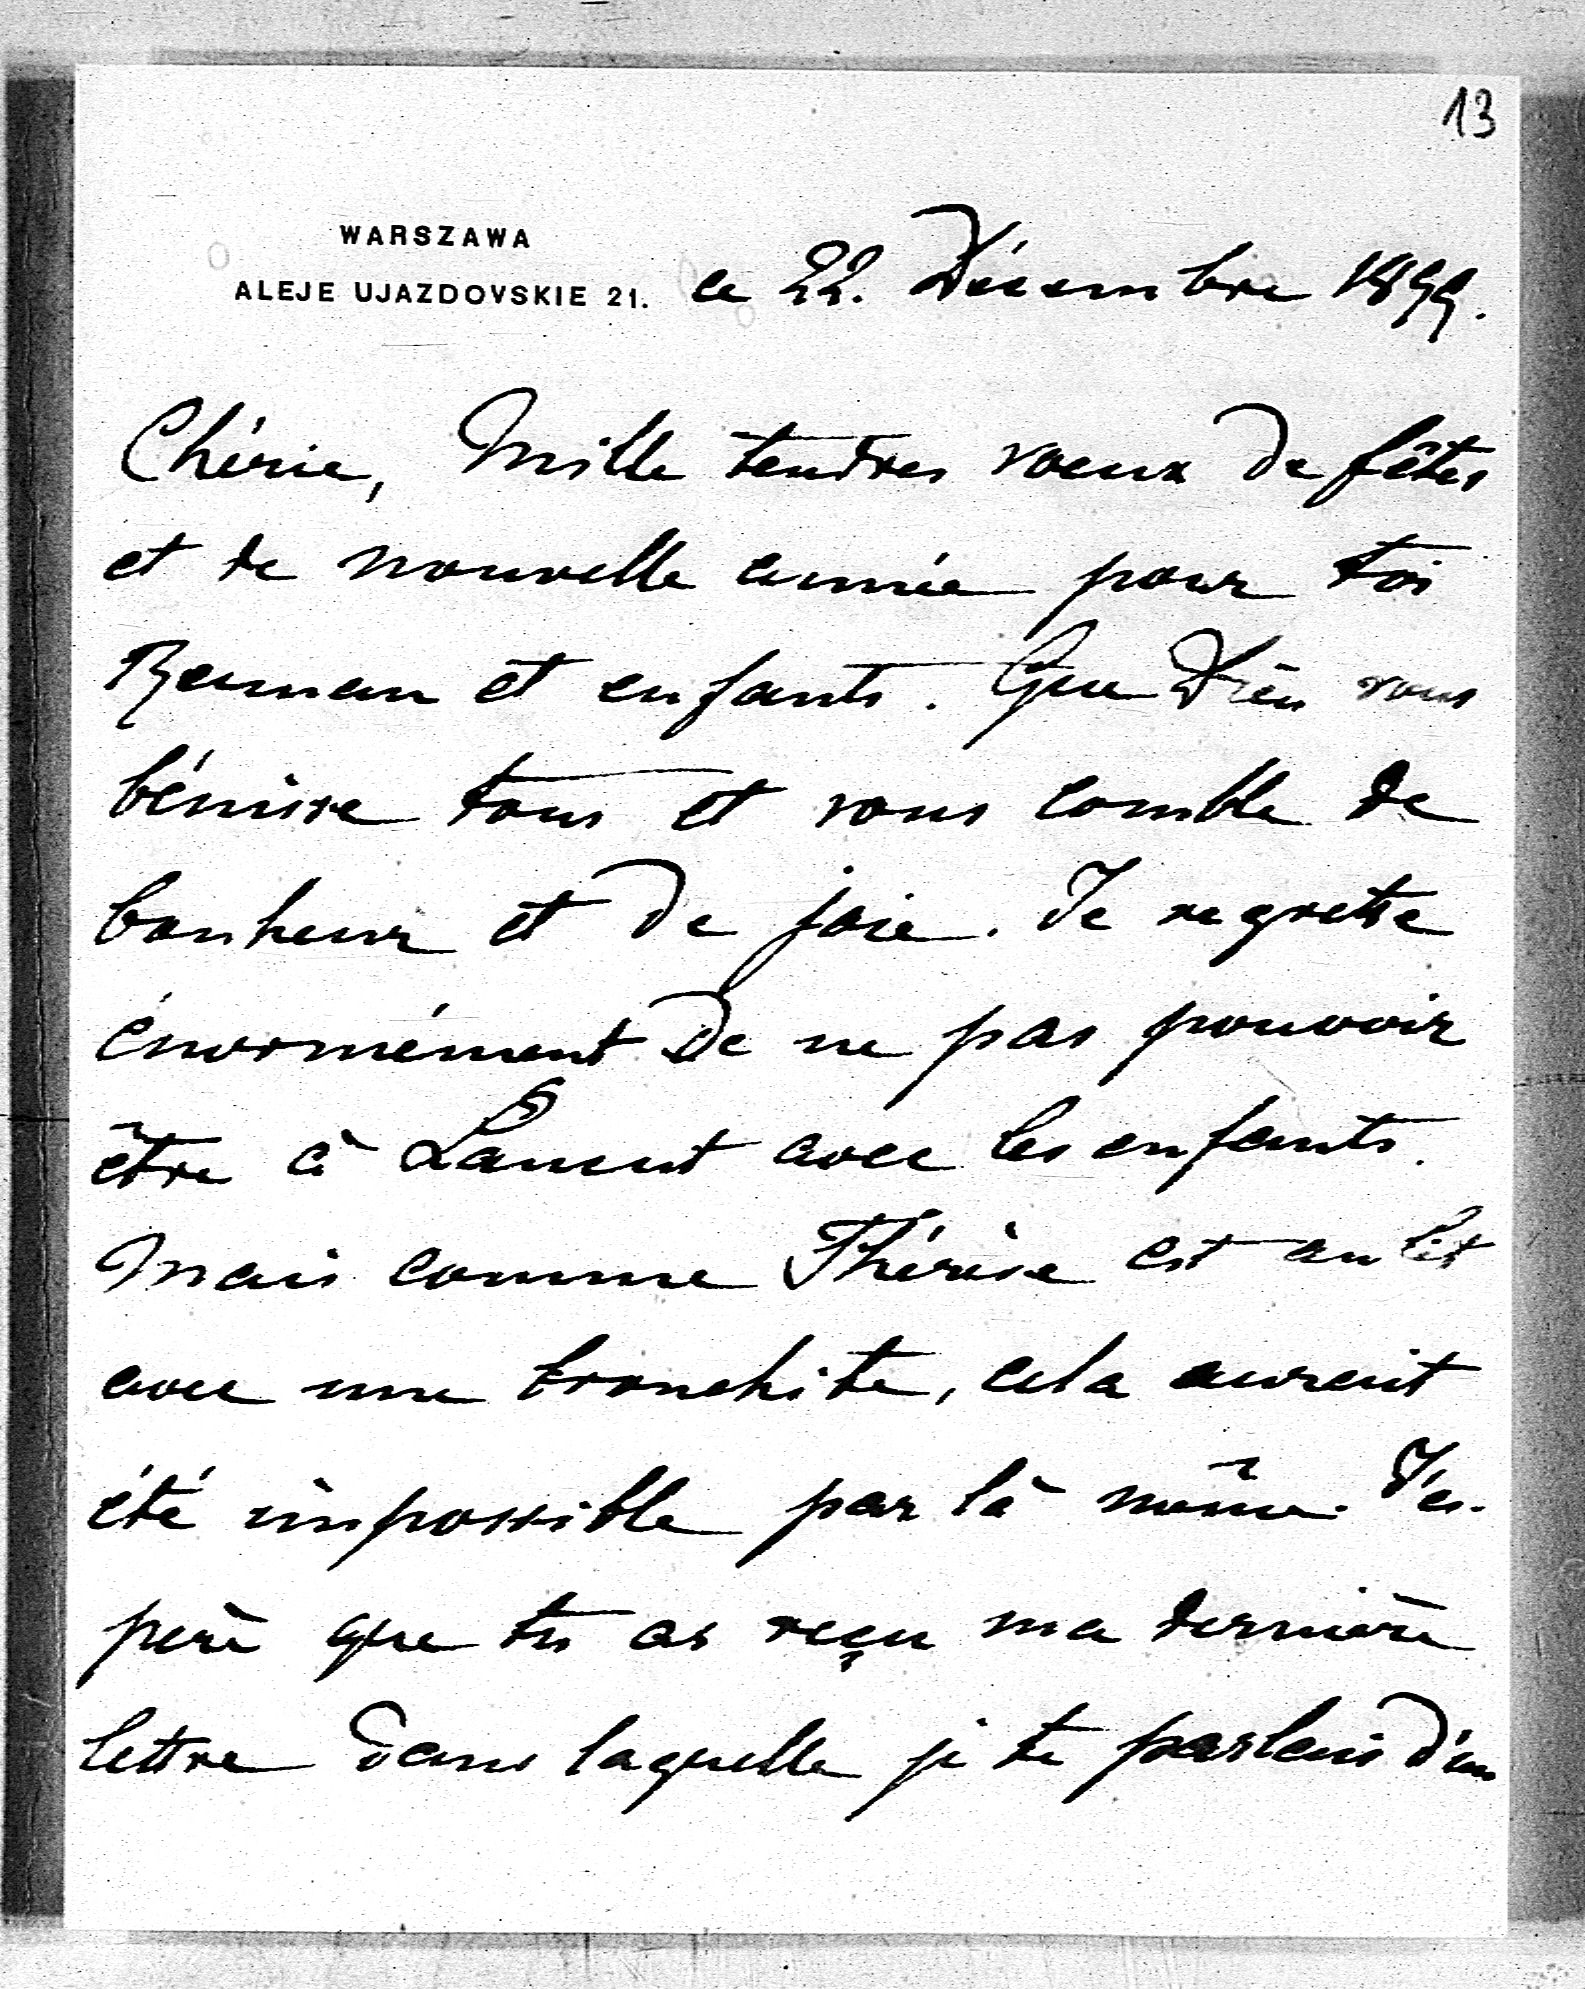 13
WARSZAWA
ALEJE UJAZDOVSKIE 21.
ce 22. Décembre 1899.
Chérie, Mille tendres voeux de fêtes
et de nouvelle année pour toi
Roman et enfants. Que Dieu vous
bénisse tous et vous comble de
bonheur et de joie. Je regrette
énormément de ne pas pouvoir
être à Lancut avec les enfants.
Mais comme Thérèse est au lit
avec une bronchite, cela aurait
été impossible par là même. J'es-
père que tu as reçu ma dernière
lettre dans laquelle je te parlais d'un